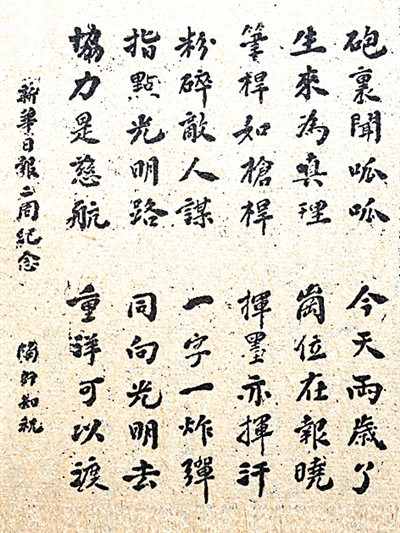 砲裏聞呱呱 今天兩歲了
生來為真理 崗位在報曉
筆桿如槍桿 揮墨亦揮汗
粉碎敵人謀 一字一炸彈
指點光明路 同向光明去
協力是慈航 重洋可以渡
新華日報二周紀念 陶行知祝